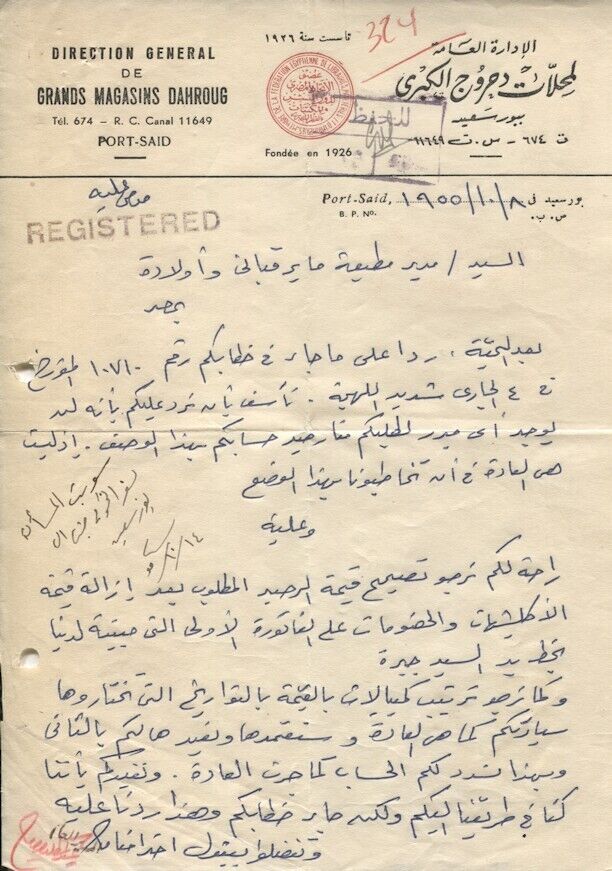 DIRECTION GENERAL
DE
GRANDS MAGASINS DAHROUG
Tél. 674 – R. C. Canal 11649
PORT-SAID
تأسست سنة ١٩٢٦
Fondée en 1926
324
الإدارة العامة
لمحلات دحروج الكبرى
ببورسعيد
ت ٦٧٤ - س.ت ١١٦٤٩
للحفظ
REGISTERED
Port-Said, ١٩٥٥/١٠/٨ بورسعيد فى
B. P. No. ص.ب.
السيد / مدير مطبعة صابر قبانى وأولاده
بمصر
بعد التحية ، ردا على ما جاء فى خطابكم رقم ١٠٧١٠ المؤرخ
فى ٤ الجارى شديد اللهجة . نأسف بأن نرد عليكم بأنه ليس
يوجد أى مبرر لطلبكم منا رصيد حسابكم بهذا الوصف . إذ ليست
هى العادة فى أن تخاطبونا بهذا الوضع
وعليه
راحة لكم نرجو تصحيح قيمة الرصيد المطلوب بعد إزالة قيمة
الأكلشيهات والخصومات على الفاتورة الأولى التى مبينة لدينا
بخط يد السيد جبرة
وكما نرجو ترتيب كمبيالات بالقيمة بالتواريخ التى تختاروها
سيادتكم كما هى العادة وسنعتمدها ونعيدها لكم بالتالى
وبهذا نسدد لكم الحساب كما جرت العادة . ونفيدكم بأننا
كنا فى طريقنا إليكم ولكن جاء خطابكم وهذا ردنا عليه
وتفضلوا بقبول احترامنا